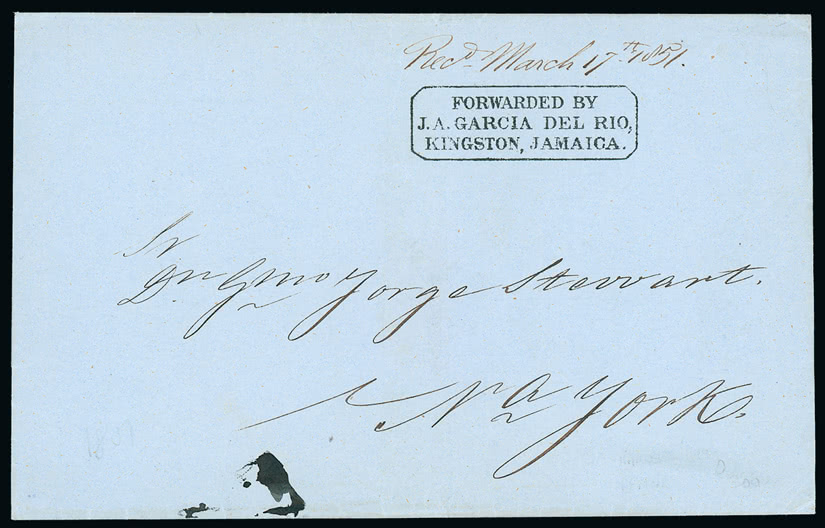 Recd. March 17th 1851.
FORWARDED BY
J. A. GARCIA DEL RIO,
KINGSTON, JAMAICA.
Sr
Dn Gmo Jorge Stewart.
Na York.